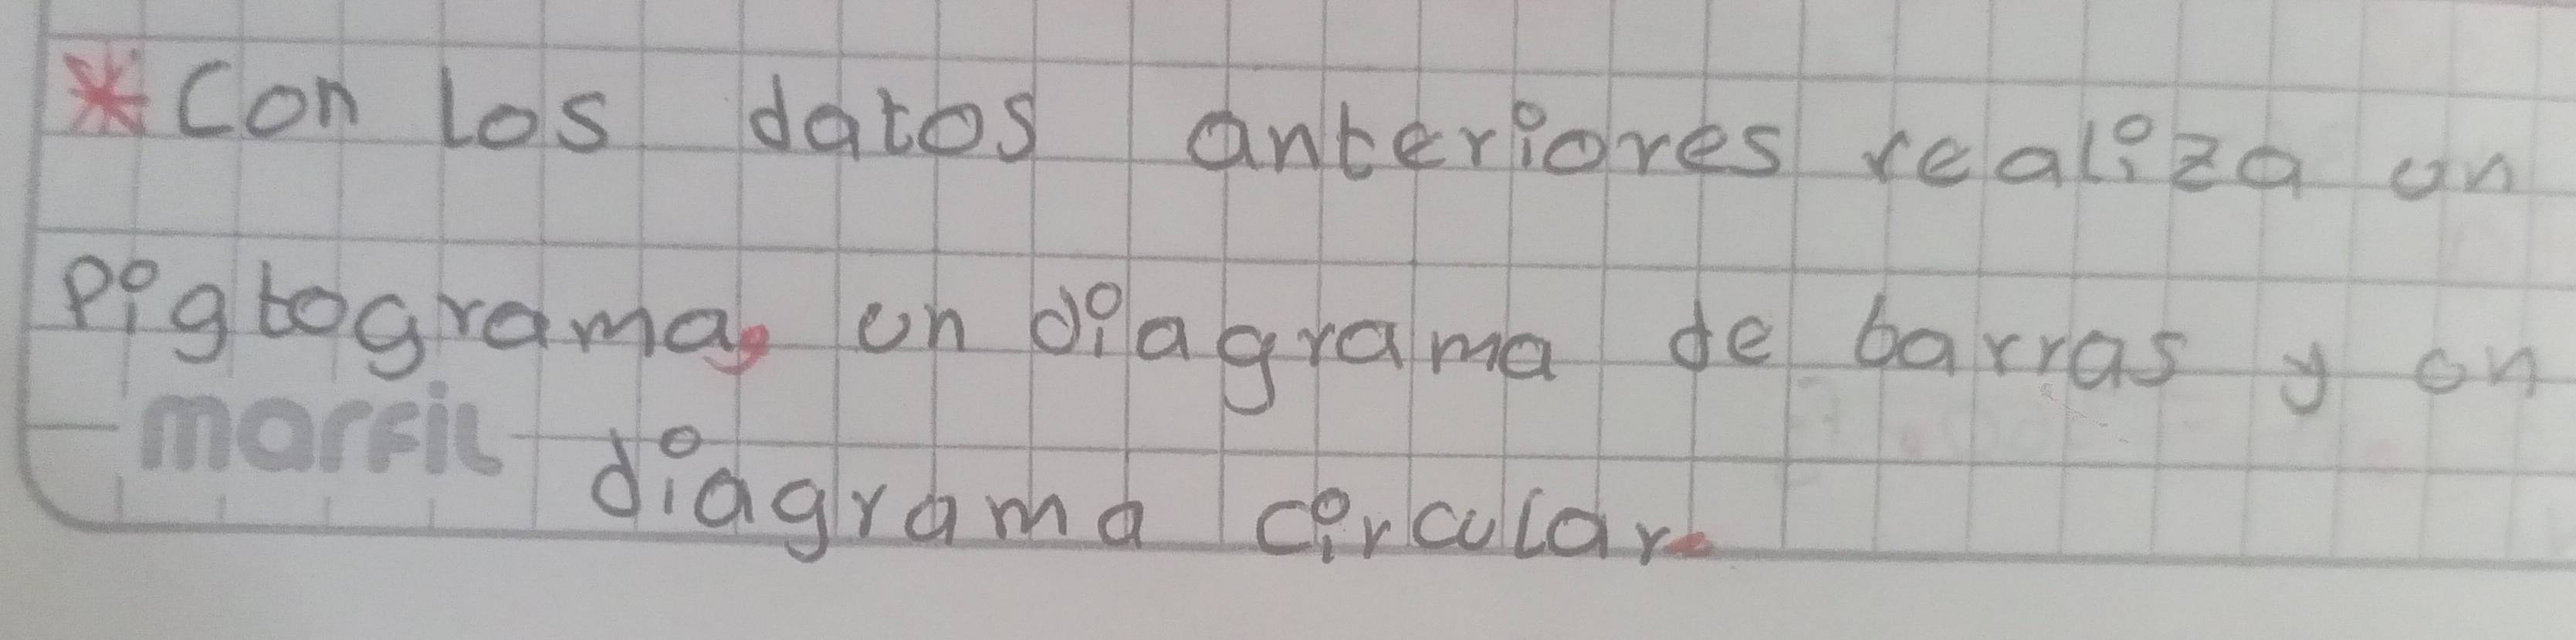 *Con los datos anteriores realiza un
pigtograma, un diagrama de barras y un
marfil diagrama circular.